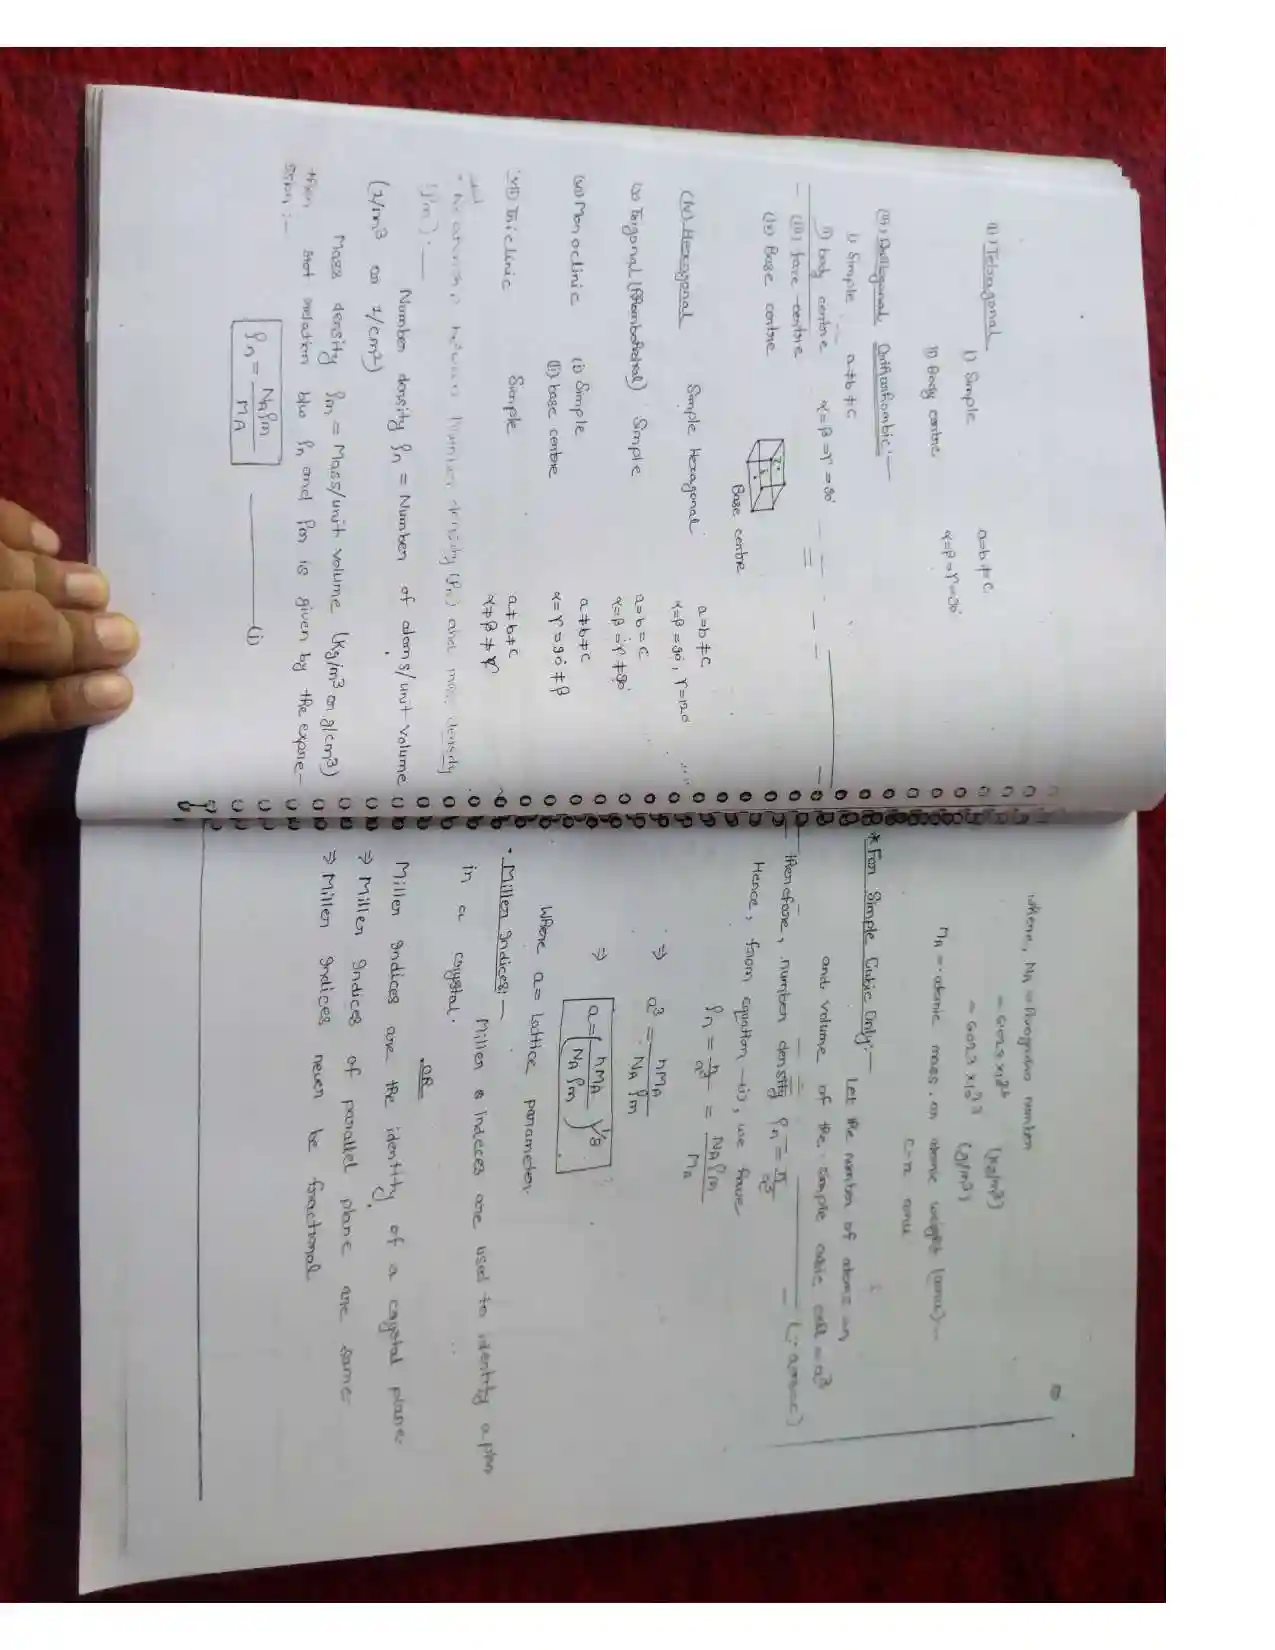 (ii) Tetragonal
i) Simple a=b≠c
ii) Body centre α=β=γ=90°
(iii) Orthorhombic:—
i) Simple a≠b≠c
ii) body centre α=β=γ=90°
(iii) face-centre
(iv) Base centre
Base centre
(iv) Hexagonal Simple Hexagonal a=b≠c
α=β=90°, γ=120
(v) Trigonal (Rhombohedral) Simple a=b=c
α=β=γ≠90°
(vi) Monoclinic (i) Simple a≠b≠c
(ii) base centre α=γ=90°≠β
(vii) Triclinic Simple a≠b≠c
α≠β≠γ
Number density (ρn) and mass density
ρm):—
Number density ρn = Number of atoms/unit volume
(1/m³ or 1/cm³)
Mass density ρm = Mass/unit volume (Kg/m³ or g/cm³)
then relation b/w ρn and ρm is given by the expre-
ssion:—
ρn = NAρm/MA —— (i)
where, NA = Avogadro number
= 6.023 x10²⁶ (Kg/m³)
= 6.023 x10²³
MA = atomic mass or atomic weight (amu)
amu
* For Simple Cubic Only:— Let the number of atoms = n
and volume of the simple cubic cell = a³
therefore, number density ρn = n/a³
Hence, from equation —(i), we have
ρn = n/a³ = NAρm/MA
⇒ a³ = nMA/NAρm
⇒ a = (nMA/NAρm)^1/3
Where a = lattice parameter.
• Miller Indices:—
Miller indeces are used to identity a plan
in a crystal.
OR
Miller Indices are the identity of a crystal plane.
⇒ Miller Indices of parallel plane are same
⇒ Miller Indices never be fractional